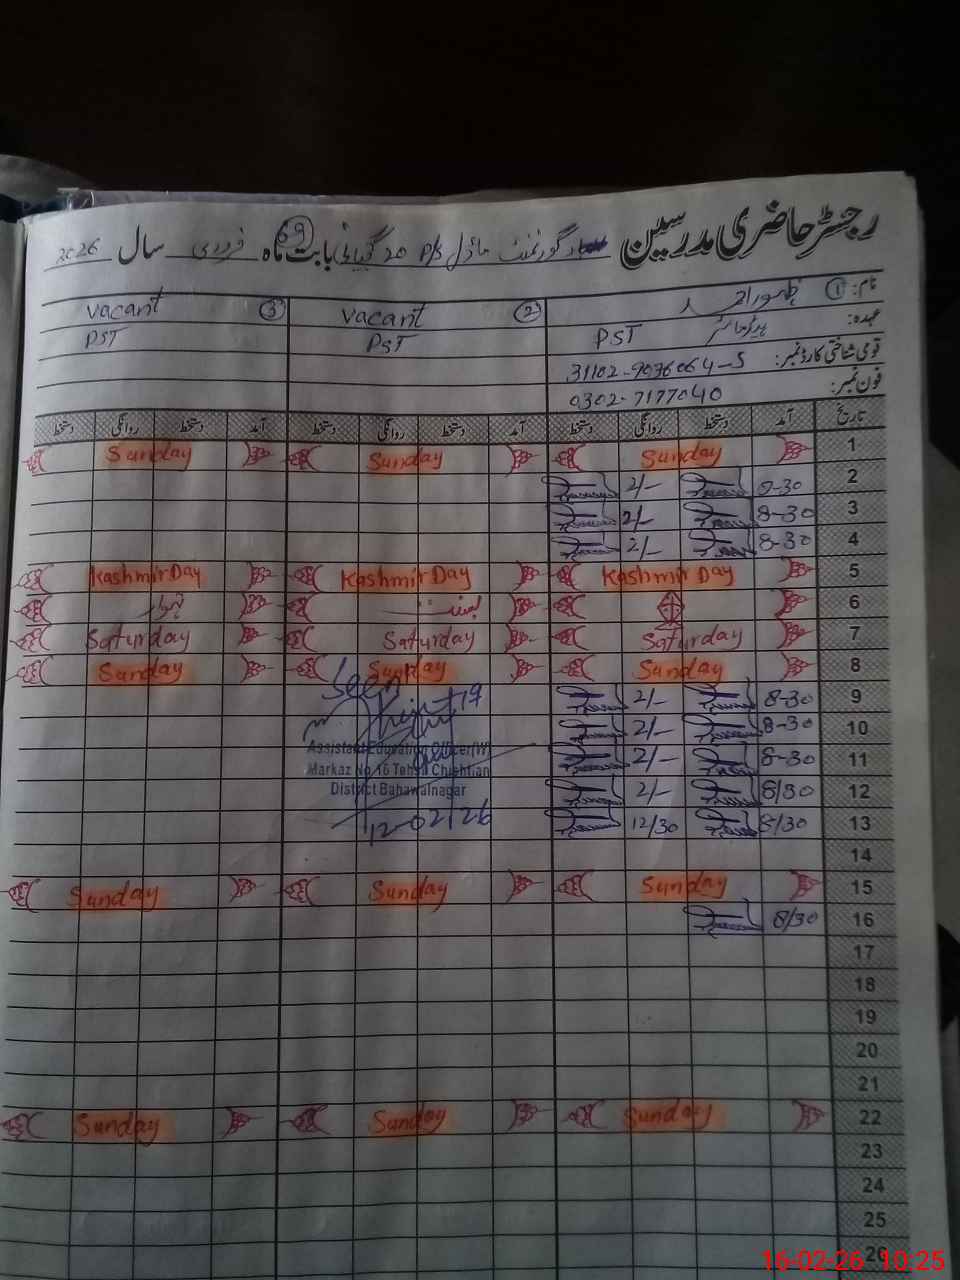 رجسٹر حاضری مدرسین گورنمنٹ ماڈل P/S 20 گجیانی بابت ماہ فروری سال 2026
69
نام: ① ظہور احمد ② vacant ③ vacant
عہدہ: ہیڈ ماسٹر PST PST PST
قومی شناختی کارڈ نمبر: 31102-9036064-5
فون نمبر: 0302-7177040
تاریخ آمد دستخط روانگی دستخط آمد دستخط روانگی دستخط آمد دستخط روانگی دستخط
1 Sunday Sunday Sunday
2 8-30 2/-
3 8-30 2/-
4 8-30 2/-
5 Kashmir Day Kashmir Day Kashmir Day
6 بسنت تہوار
7 Saturday Saturday Saturday
8 Sunday Sunday Sunday
Seen
9 8-30 2/-
10 8-30 2/-
Assistant Education Officer(W)
11 8-30 2/-
Markaz No.16 Tehsil Chishtian
12 8/30 2/-
District Bahawalnagar
13 8/30 12/30
12-02-26
14
15 Sunday Sunday Sunday
16 8/30
17
18
19
20
21
22 Sunday Sunday Sunday
23
24
25
26
16-02-26 10:25